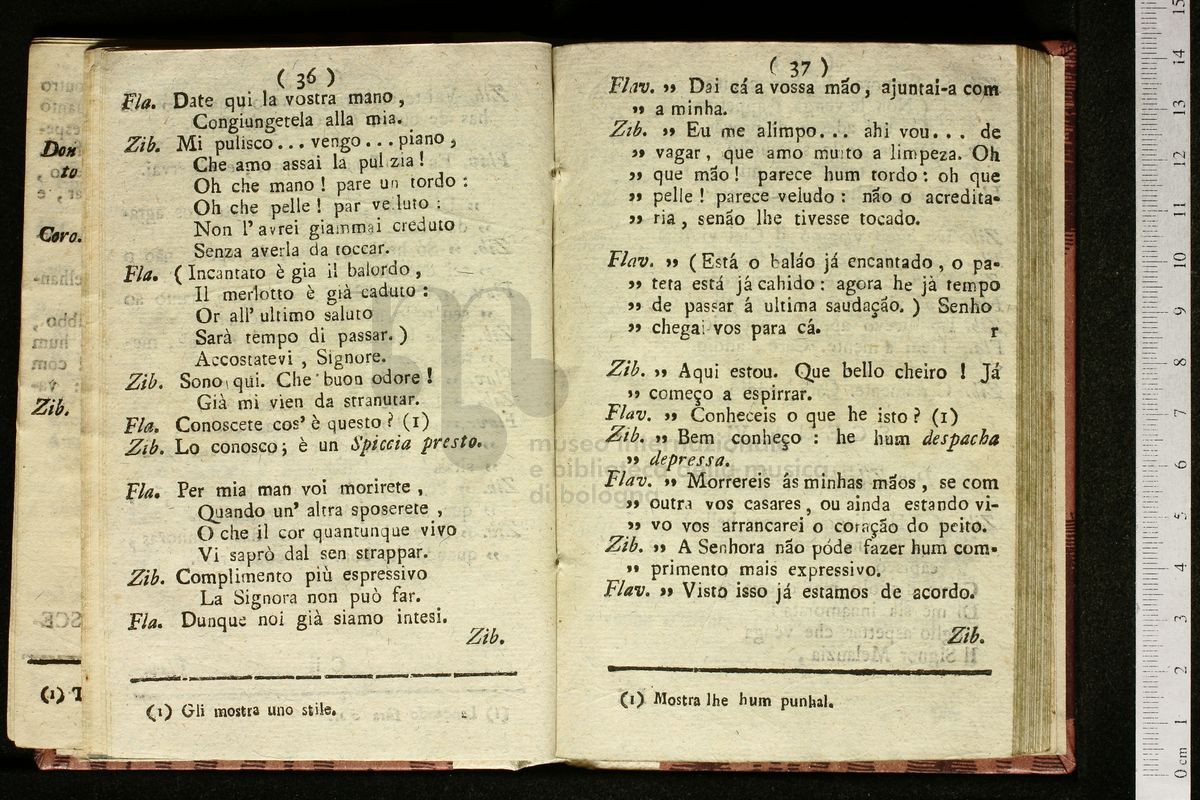 ( 36 )
Fla. Date qui la vostra mano,
Congiungetela alla mia.
Zib. Mi pulisco... vengo... piano,
Che amo assai la pul zia!
Oh che mano! pare un tordo:
Oh che pelle! par velluto:
Non l'avrei giammai creduto
Senza averla da toccar.
Fla. (Incantato è gia il balordo,
Il merlotto è già caduto:
Or all' ultimo saluto
Sarà tempo di passar.)
Accostatevi, Signore.
Zib. Sono qui. Che buon odore!
Già mi vien da stranutar.
Fla. Conoscete cos' è questo? (1)
Zib. Lo conosco; è un Spiccia presto.
Fla. Per mia man voi morirete,
Quando un' altra sposerete,
O che il cor quantunque vivo
Vi saprò dal sen strappar.
Zib. Complimento più espressivo
La Signora non può far.
Fla. Dunque noi già siamo intesi.
Zib.
(1) Gli mostra uno stile.
( 37 )
Flav. " Dai cá a vossa mão, ajuntai-a com
" a minha.
Zib. " Eu me alimpo... ahi vou... de
" vagar, que amo muito a limpeza. Oh
" que mão! parece hum tordo: oh que
" pelle! parece veludo: não o acredita-
" ria, senão lhe tivesse tocado.
Flav. " (Está o baláo já encantado, o pa-
" teta está já cahido: agora he já tempo
" de passar á ultima saudação.) Senho
" chegai-vos para cá. r
Zib. " Aqui estou. Que bello cheiro! Já
" começo a espirrar.
Flav. " Conheceis o que he isto? (1)
Zib. " Bem conheço: he hum despacha
" depressa.
Flav. " Morrereis ás minhas mãos, se com
" outra vos casares, ou ainda estando vi-
" vo vos arrancarei o coração do peito.
Zib. " A Senhora não póde fazer hum com-
" primento mais expressivo.
Flav. " Visto isso já estamos de acordo.
Zib.
(1) Mostra lhe hum punhal.
Don
to
Coro.
Zib.
(1) T
museo internazionale
e biblioteca della musica
di bologna
0 cm 1 2 3 4 5 6 7 8 9 10 11 12 13 14 15